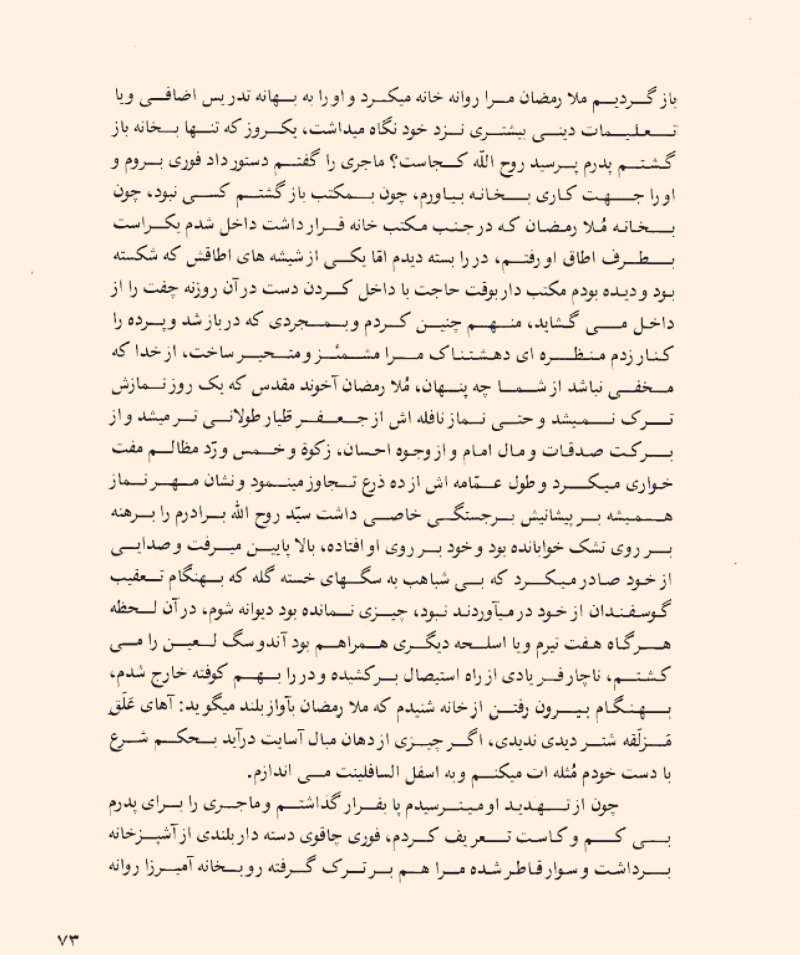 باز گردیم ملا رمضان مرا روانه خانه میکرد و او را به بهانه تدریس اضافی ویا
تعلیمات دینی بیشتری نزد خود نگاه میداشت، یکروز که تنها بخانه باز
گشتم پدرم پرسید روح اللّه کجاست؟ ماجری را گفتم دستور داد فوری بروم و
او را جهت کاری بخانه بیاورم، چون بمکتب باز گشتم کسی نبود، چون
بخانه مُلا رمضان که در جنب مکتب خانه قرار داشت داخل شدم یکراست
بطرف اطاق او رفتم، در را بسته دیدم امّا یکی از شیشه های اطاقش که شکسته
بود و دیده بودم مکتب دار بوقت حاجت با داخل کردن دست در آن روزنه چفت را از
داخل می گشاید، منهم چنین کردم و بمجردی که در باز شد و پرده را
کنار زدم منظره ای دهشتناک مرا مشمئز و متحیر ساخت، از خدا که
مخفی نباشد از شما چه پنهان، مُلا رمضان آخوند مقدس که یک روز نمازش
ترک نمیشد و حتی نماز نافله اش از جعفر طّیار طولانی تر میشد و از
برکت صدقات و مال امام و از وجوه احسان، زکوة و خمس و ردّ مظالم مفت
خواری میکرد و طول عمّامه اش از ده ذرع تجاوز مینمود و نشان مهر نماز
همیشه بر پیشانیش برجستگی خاصی داشت سیّد روح الله برادرم را برهنه
بر روی تشک خوابانده بود و خود بر روی او افتاده، بالا پایین میرفت و صدایی
از خود صادر میکرد که بی شباهب به سگهای خسته گله که بهنگام تعقیب
گوسفندان از خود در میآوردند نبود، چیزی نمانده بود دیوانه شوم، در آن لحظه
هرگاه هفت تیرم ویا اسلحه دیگری همراهم بود آندو سگ لعین را می
کشتم، ناچار فریادی از راه استیصال برکشیده و در را بهم کوفته خارج شدم،
بهنگام بیرون رفتن از خانه شنیدم که ملا رمضان بآواز بلند میگوید: آهای عَلَقِ
مَزلَقه شتر دیدی ندیدی، اگر چیزی از دهان مبال آسایت درآید بحکم شرع
با دست خودم مُثله ات میکنم و به اسفل السافلینت می اندازم.
چون از تهدید او میترسیدم پا بفرار گذاشتم و ماجری را برای پدرم
بی کم و کاست تعریف کردم، فوری چاقوی دسته دار بلندی از آشپزخانه
برداشت و سوار قاطر شده مرا هم بر ترک گرفته رو بخانه آمیرزا روانه
۷۳